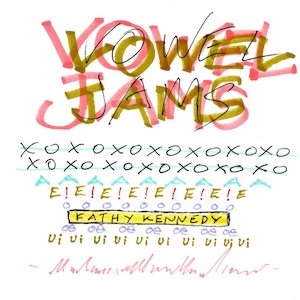 VOWEL
JAMS
XOXOXOXOXOXOXOXO
XOXOXOXOXOXOXOXO
A A A A A A A A A
E!E!E!E!E!E!E!E!
KATHY KENNEDY
œ œ œ œ œ œ œ œ œ
Ui Ui Ui Ui Ui Ui Ui Ui Ui Ui